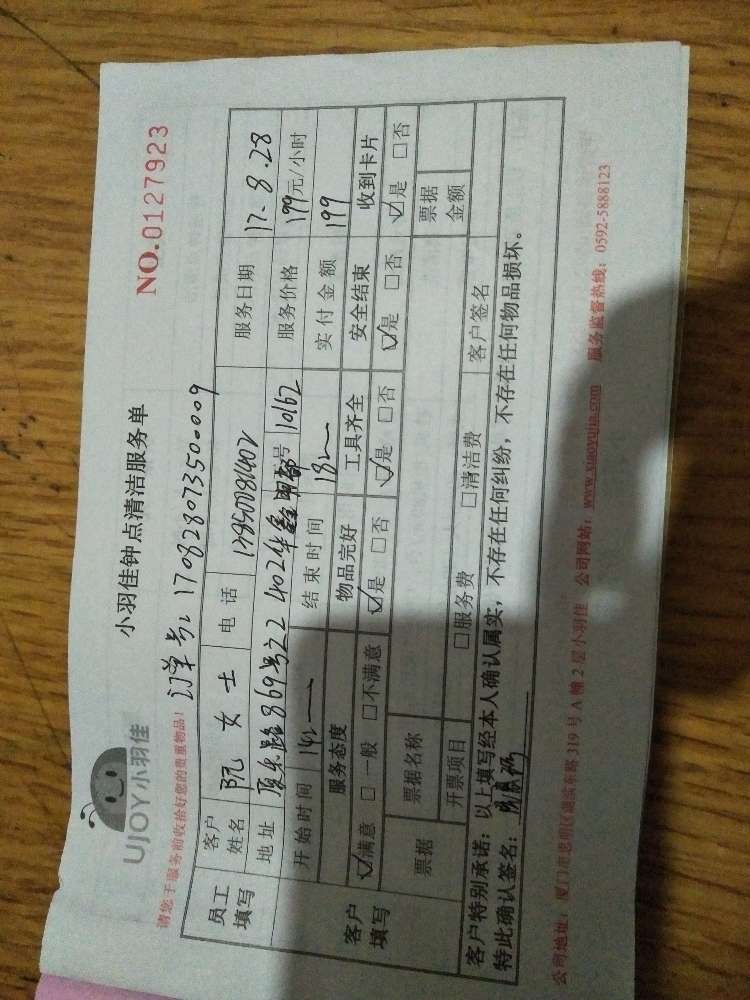 UJOY小羽佳
小羽佳钟点清洁服务单
NO.0127923
请您于服务前收拾好您的贵重物品!
订单号: 170828073500009
员工填写
客户姓名 阮女士 电话 服务日期 17.8.28
地址 402华鑫 号 10162 服务价格 199元/小时
开始时间 结束时间 实付金额 199
客户填写
服务态度 物品完好 工具齐全 安全结束 收到卡片
☑满意 □一般 □不满意 ☑是 □否 ☑是 □否 ☑是 □否 ☑是 □否
票据 票据名称 票据金额
开票项目 □服务费 □清洁费 客户签名
客户特别承诺: 以上填写经本人确认属实, 不存在任何纠纷, 不存在任何物品损坏。
特此确认签名:
公司地址: 厦门市思明区湖滨东路319号A幢2层小羽佳 公司网站: www.xiaoyujia.com 服务监督热线: 0592-5888123